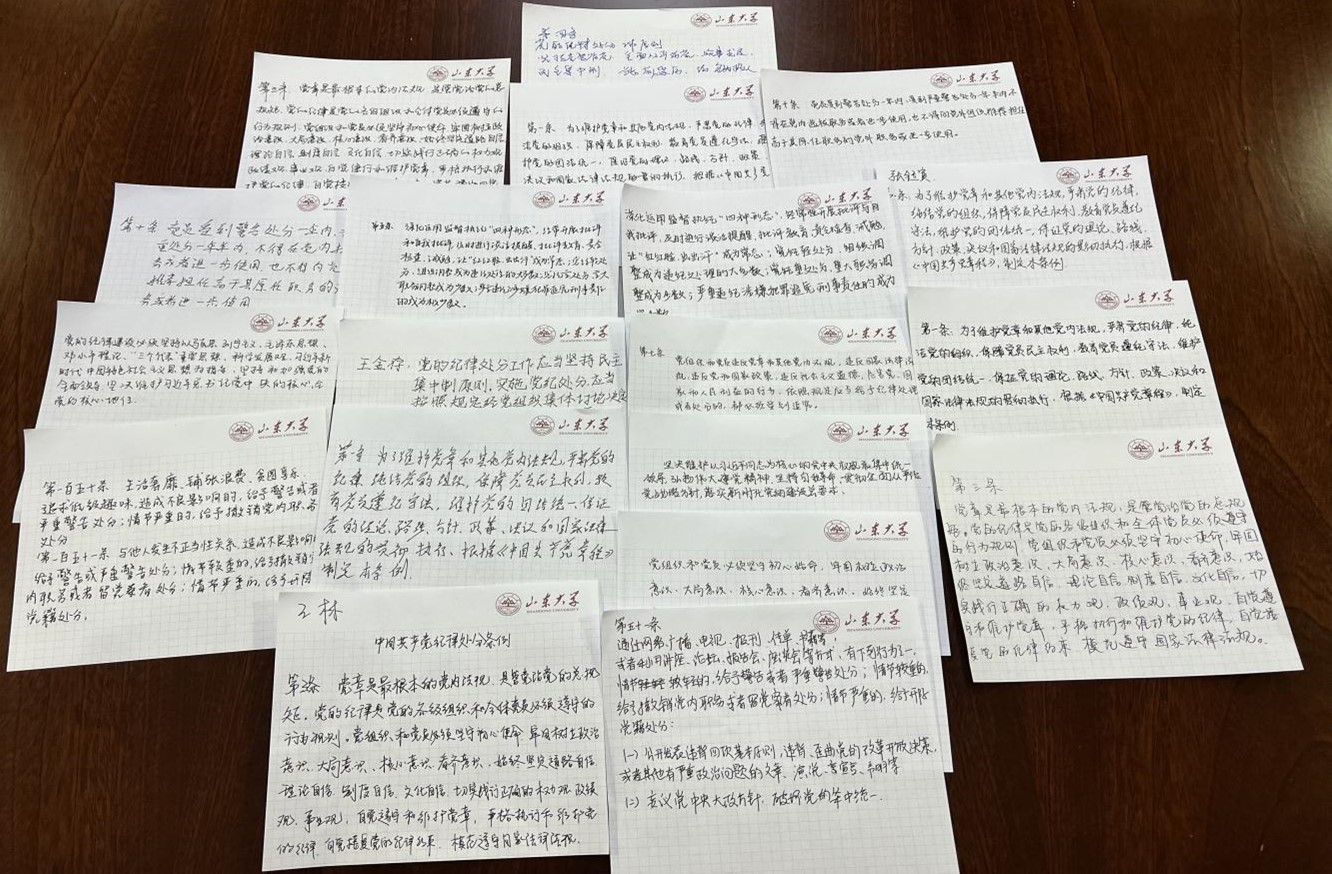 山东大学
第四章
山东大学
第三条 党章是最根本的党内法规，是管党治党的总
规矩。党的纪律是党的各级组织和全体党员必须遵守的
行为规则。党组织和党员必须坚守初心使命，牢固树立政
治意识、大局意识、核心意识、看齐意识，始终坚定道路自信、
理论自信、制度自信、文化自信，切实践行正确的权力观、
政绩观、事业观，自觉遵守和维护党章，严格执行和维
护党的纪律，自觉接
山东大学
第一条 为了维护党章和其他党内法规，严肃党的纪律，
洁党的组织，保障党员民主权利，教育党员遵纪守法，维
护党的团结统一，保证党的理论、路线、方针、政策、
决议和国家法律法规的贯彻执行，根据《中国共产党
山东大学
第十条 党员受到警告处分一年内、受到严重警告处分一年半内，不
得在党内提拔职务或者进一步使用，也不得向党外组织推荐担任
高于其原任职务的党外职务或进一步使用。
山东大学
第十条 党员受到警告处分一年内、
重处分一年半内，不得在党内提
务或者进一步使用，也不得向党
推荐担任高于其原任职务的
务或者进一步使用
山东大学
第五条 深化运用监督执纪“四种形态”，经常开展批评
和自我批评，及时进行谈话提醒、批评教育、责令
检查、诫勉，让“红红脸、出出汗”成为常态；
山东大学
深化运用监督执纪“四种形态”，经常性开展批评与自
我批评，及时进行谈话提醒、批评教育、责令检查、诫勉，
让“红红脸、出出汗”成为常态；党纪轻处分、组织调
整成为违纪处理的大多数；党纪重处分、重大职务调
整成为少数；严重违纪涉嫌犯罪追究刑事责任的成为
山东大学
条、为了维护党章和其他党内法规，严肃党的纪律，
纯洁党的组织，保障党员民主权利，教育党员遵纪
守法，维护党的团结统一，保证党的理论、路线、
方针、政策、决议和国家法律法规的贯彻执行，根据
《中国共产党章程》，制定本条例
山东大学
党的纪律建设必须坚持以马克思列宁主义、毛泽东思想、
邓小平理论、“三个代表”重要思想、科学发展观、习近平新
时代中国特色社会主义思想为指导，坚持和加强党的
全面领导，坚决维护习近平总书记党中央的核心、全
党的核心地位，
山东大学
王金存， 党的纪律处分工作应当坚持民主
集中制原则，实施党纪处分应当
按照规定经党组织集体讨论决定
山东大学
第七条
党组织和党员违反党章和其他党内法规，违反国家法律法
规，违反党和国家政策，违反社会主义道德，危害党、国
家和人民利益的行为，依照规定应当给予纪律处理
或者处分的，都必须受到追究。
山东大学
第一条、为了维护党章和其他党内法规，严肃党的纪律，纯
洁党的组织，保障党员民主权利，教育党员遵纪守法，维护
党的团结统一，保证党的理论、路线、方针、政策、决议和
国家法律法规的贯彻执行，根据《中国共产党章程》，制定
本条例
山东大学
第一百五十条 生活奢靡、铺张浪费、贪图享乐、
追求低级趣味，造成不良影响的，给予警告或者
严重警告处分；情节严重的，给予撤销党内职务
处分
第一百五十一条 与他人发生不正当性关系，造成不良影响的
给予警告或严重警告处分；情节较重的，给予撤销党
内职务或者留党察看处分；情节严重的，给予开除
党籍处分。
山东大学
第一章 为了维护党章和其他党内法规，严肃党的
纪律，纯洁党的组织，保障党员民主权利，教
育党员遵纪守法，维护党的团结统一，保证
党的理论、路线、方针、政策、决议和国家法律
法规的贯彻执行，根据《中国共产党章程》
制定本条例
山东大学
坚决维护以习近平同志为核心的党中央权威和集中统一
领导，弘扬伟大建党精神，坚持自我革命，贯彻全面从严治
党战略方针，落实新时代党的建设总要求，
山东大学
党组织和党员必须坚守初心使命，牢固树立政治
意识、大局意识、核心意识、看齐意识，始终坚定
山东大学
第三条
党章是最根本的党内法规，是管党治党的总规
矩。党的纪律是党的各级组织和全体党员必须遵守
的行为规则。党组织和党员必须坚守初心使命，牢固
树立政治意识、大局意识、核心意识、看齐意识，始
终坚定道路自信、理论自信、制度自信、文化自信，切
实践行正确的权力观、政绩观、事业观，自觉遵
守和维护党章，严格执行和维护党的纪律，自觉接
受党的纪律约束，模范遵守国家法律法规。
山东大学
王林
中国共产党纪律处分条例
第三条 党章是最根本的党内法规，是管党治党的总规
矩。党的纪律是党的各级组织和全体党员必须遵守的
行为规则。党组织和党员必须坚守初心使命，牢固树立政治
意识、大局意识、核心意识、看齐意识，始终坚定道路自信、
理论自信、制度自信、文化自信，切实践行正确的权力观、政绩
观、事业观，自觉遵守和维护党章，严格执行和维护党
的纪律，自觉接受党的纪律约束，模范遵守国家法律法规。
山东大学
第五十一条
通过网络、广播、电视、报刊、传单、书籍等，
或者利用讲座、论坛、报告会、座谈会等方式，有下列行为之一，
情节较轻的，给予警告或者严重警告处分；情节较重的，
给予撤销党内职务或者留党察看处分；情节严重的，给予开除
党籍处分：
(一)公开发表违背四项基本原则，违背、歪曲党的改革开放决策，
或者其他有严重政治问题的文章、演说、宣言、声明等
(二)妄议党中央大政方针，破坏党的集中统一